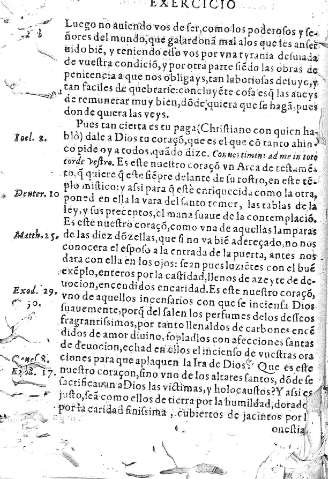 EXERCICIO
Luego no auiendo vos de ser, como los poderosos y se-
ñores del mundo, que galardonã mal a los que les an ser
uido biẽ, y teniendo esso vos por vna tyrania desusada
de vuestra condiciõ, y por otra parte siẽdo las obras de
penitencia a que nos obligays, tan laboriosas de suyo, y
tan faciles de quebrarse: concluyẽte cosa es q̃ las aueys
de remunerar muy bien, dõde quiera que se hagã: pues
don de quiera las veys.
Pues tan cierta es tu paga (Christiano con quien ha-
blo) dale a Dios tu coraçõ, que es el que cõ tanto ahin-
Ioel. 2. co pide o y a todos. quãdo dize. Conuertimini ad me in toto
corde vestro. Es este nuestro coraçõ vn Arca de testamẽ-
to, q̃ quiere q̃ este siẽpre delante de su rostro, en este tẽ-
plo mistico: y assi para q̃ estè enriquecida como la otra,
Deuter. 10 poned en ella la vara del santo temer, las tablas de la
ley, y sus preceptos, el mana suaue de la contemplaciõ.
Es este nuestro coraçõ, como vna de aquellas lamparas
Matth. 25. de las diez dõzellas, que si no va biẽ adereçado, no nos
conocera el esposo a la entrada de la puerta, antes nos
dara con ella en los ojos: sean pues luziẽtes con el buẽ
exẽplo, enteros por la castidad, llenos de azeyte de de-
uocion, encendidos en caridad. Es este nuestro coraçõ,
Exod. 29. vno de aquellos incensarios con que se inciensa Dios
30. suauemente, porq̃ del salen los perfumes de los desseos
fragrantissimos, por tanto llenaldos de carbones encẽ
didos de amor diuino, sopladlos con afecciones santas
de deuocion, echad en ellos el incienso de vuestras ora
Genes. 8. ciones para que aplaquen la Ira de Dios. Que es este
17. nuestro coraçon, sino vno de los altares santos, dõde se
sacrificauan a Dios las victimas, y holocaustos? Y assi es
justo, seã como ellos de tierra por la humildad, dorado
por la caridad finissima, cubiertos de jacintos por l
onestia